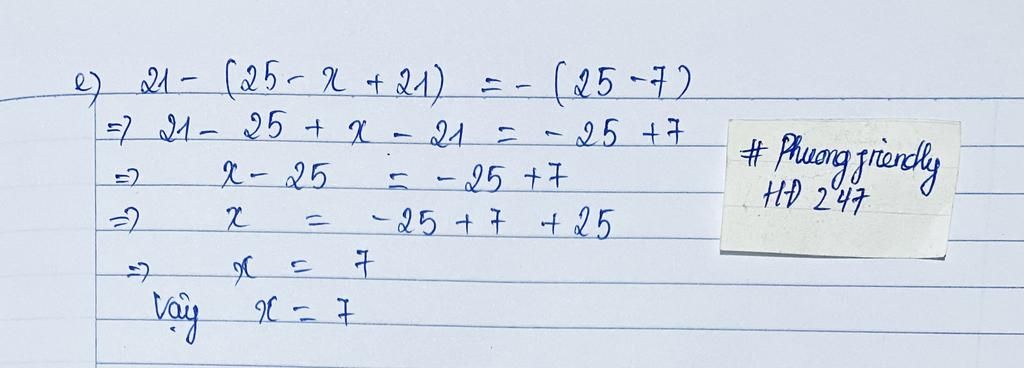 e) 21 - (25 - x + 21) = - (25 - 7)
=> 21 - 25 + x - 21 = - 25 + 7
=> x - 25 = - 25 + 7
=> x = - 25 + 7 + 25
=> x = 7
Vậy x = 7
# Phuongfriendly
HĐ 247